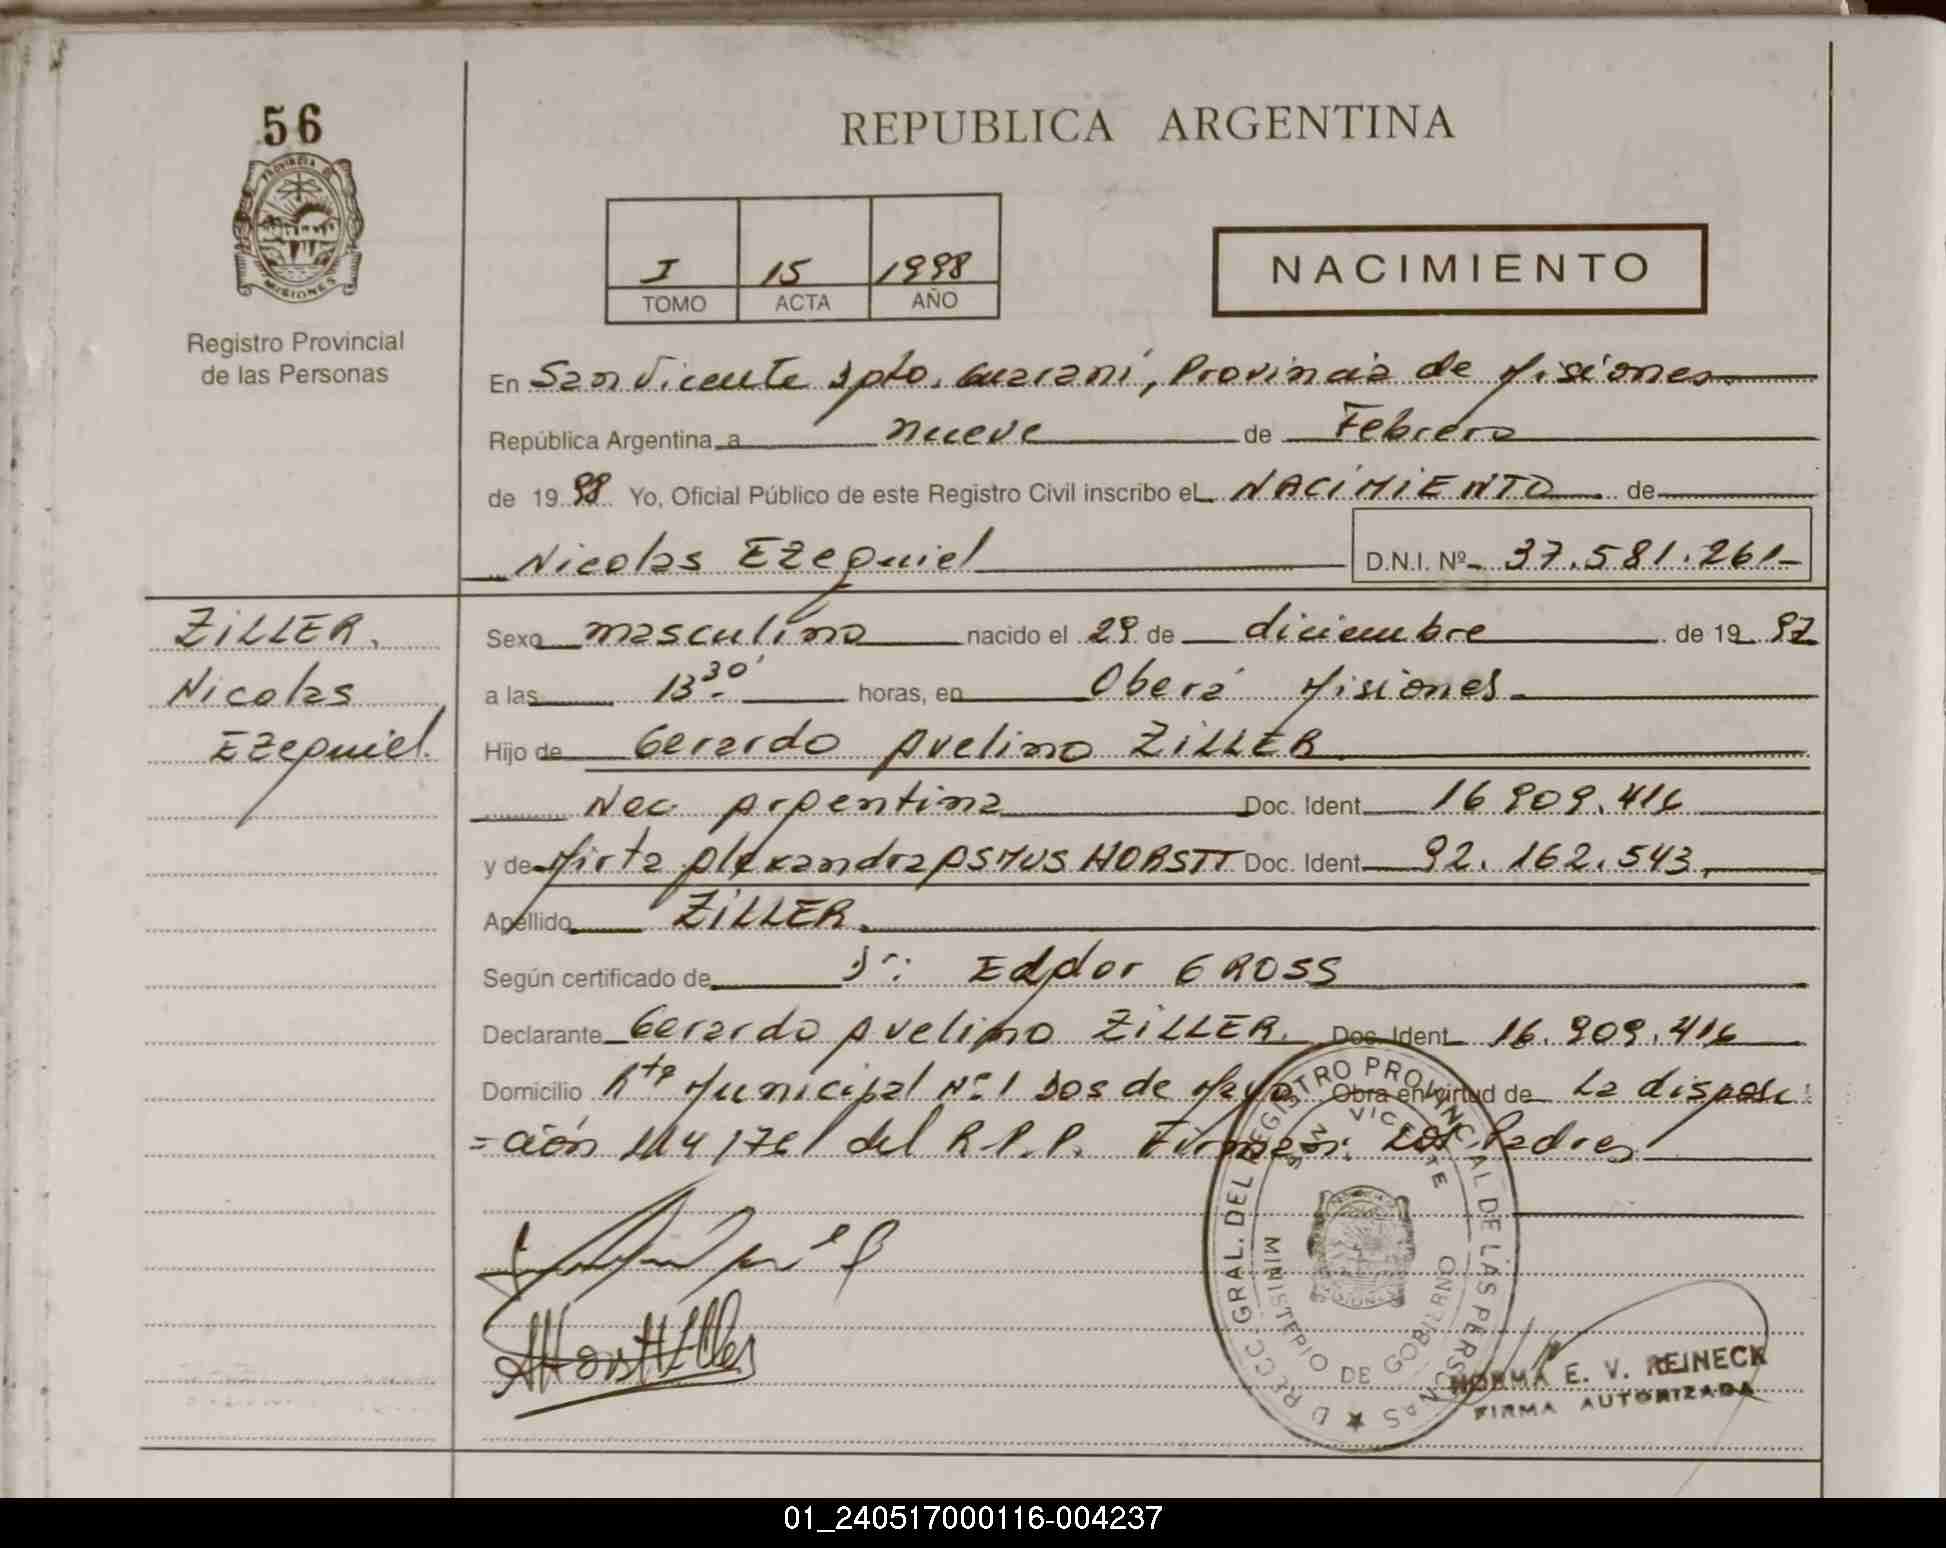 56
REPUBLICA ARGENTINA
PROVINCIA DE
MISIONES
Registro Provincial
de las Personas
I 15 1998
TOMO ACTA AÑO
NACIMIENTO
En San Vicente Dpto. Guarani, Provincia de Misiones
República Argentina a nueve de Febrero
de 19 98 Yo, Oficial Público de este Registro Civil inscribo el NACIMIENTO de
Nicolas Ezequiel D.N.I. Nº 37.581.261-
ZiLLER.
Nicolas
Ezequiel.
Sexo masculino nacido el 29 de diciembre de 19 97
a las 13 30' horas, en Oberá Misiones
Hijo de Gerardo Avelino ZiLLER
Nac. Argentina Doc. Ident 16 909.416
y de Mirta Alexandra ASMUS HORSTT Doc. Ident 92.162.543
Apellido ZiLLER
Según certificado de Dr: Edgdor GROSS
Declarante Gerardo Avelino ZiLLER. Doc. Ident 16.909.416
Domicilio Rta Municipal Nº 1 Dos de Mayo Obra en virtud de La disposi
=ción 114/76 del R.P.P. Firman: Los Padres
DIRECC. GRAL. DEL REGISTRO PROVINCIAL DE LAS PERSONAS
SAN VICENTE
MINISTERIO DE GOBIERNO
NORMA E. V. REINECK
FIRMA AUTORIZADA
01_240517000116-004237